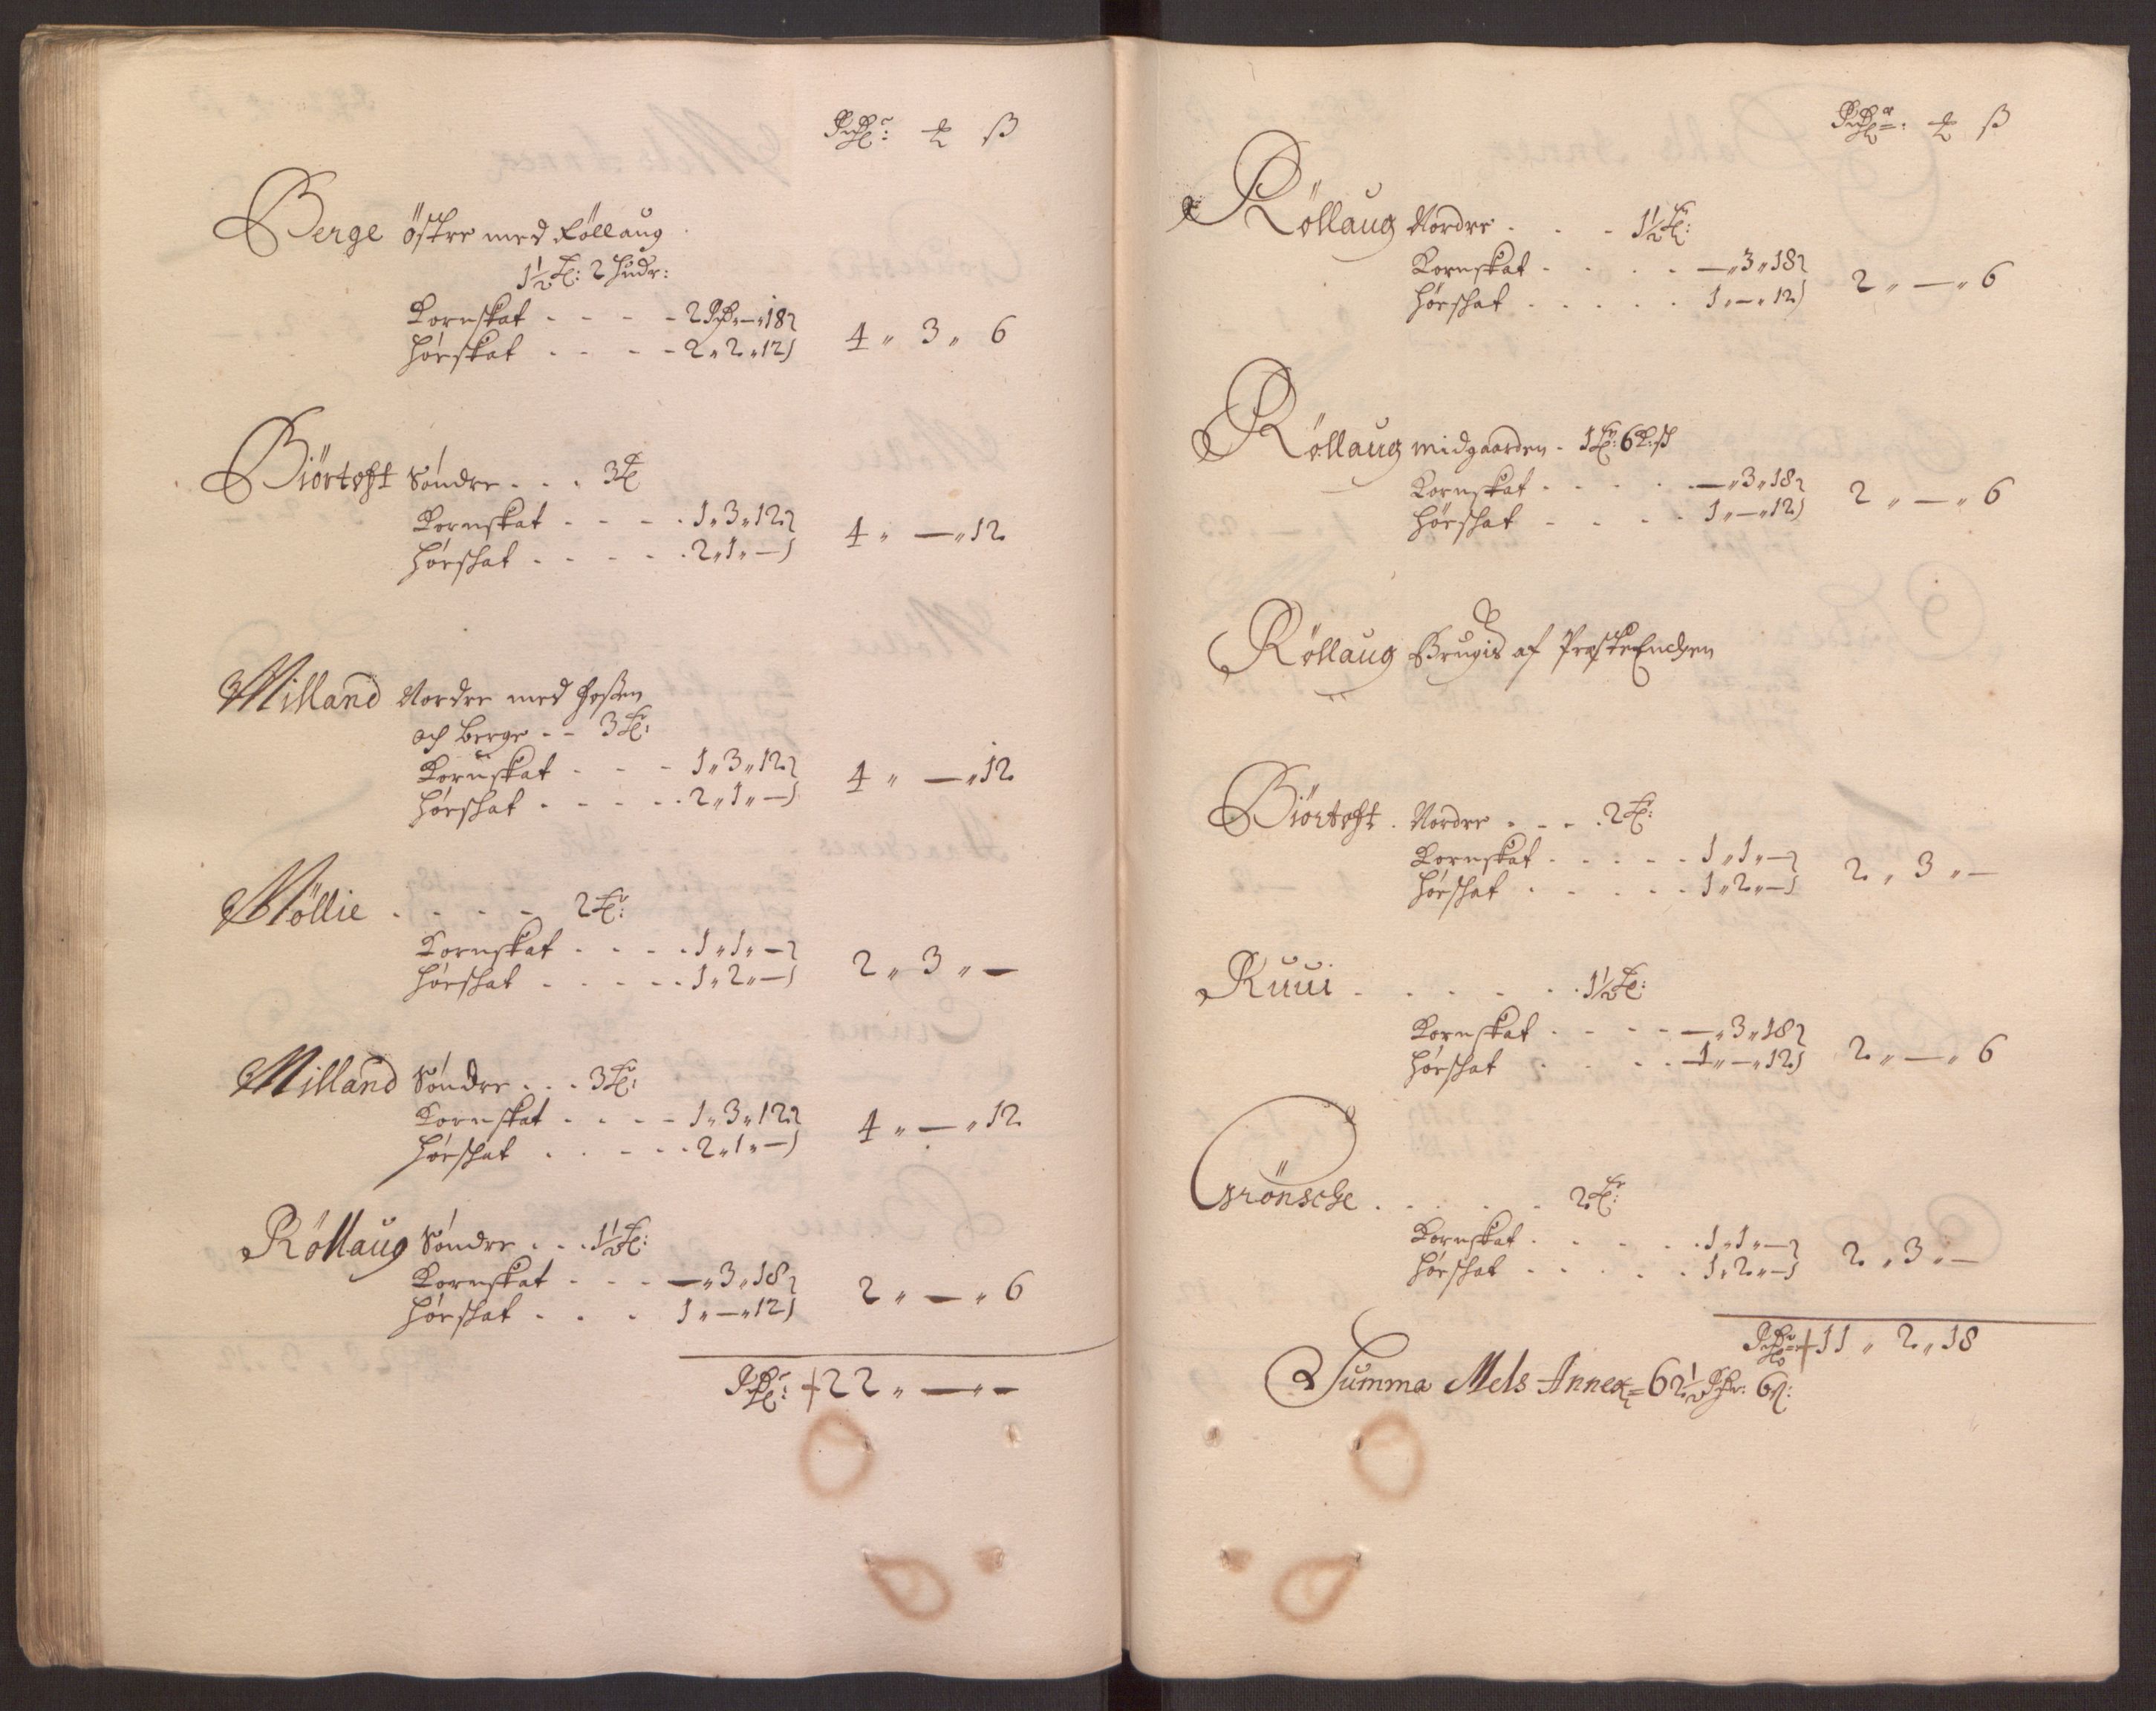 Rdr: ₰ ß
Berge östre med Röllaug
1½ T: 2 hudr:
Kornskat - - - - 2 Rd „ — „ 18
hörskat - - - - 2 „ 2 „ 12 4 „ 3 „ 6
Giörtoft Söndre . . . 3 T
Kornskat - - - - 1 „ 3 „ 12
hörschat - - - - - 2 „ 1 „ — 4 „ — „ 12
Milland Nordre med
och Berge - - 3 T:
Kornskat - - - 1 „ 3 „ 12
hörschat - - - - - 2 „ 1 „ — 4 „ — „ 12
Möllie - - - - 2 T:
Kornskat - - - - 1 „ 1 „ —
hörschat - - - - - 1 „ 2 „ — 2 „ 3 „ —
Milland Söndre . . . 3 T:
Kornskat - - - - 1 „ 3 „ 12
hörschat - - - - - 2 „ 1 „ — 4 „ — „ 12
Röllaug Söndre . . . 1½ T:
Kornskat - - - — „ 3 „ 18
hörschat - - - 1 „ — „ 12 2 „ — „ 6
Rdr: + 22 „ — „ —
Rdr: ₰ ß
Röllaug Nordre - - - 1½ T:
Kornskat - - - - — „ 3 „ 18
hörschat - - - - - 1 „ — „ 12 2 „ — „ 6
Röllaug midgaarden - 1 T: 6
Kornskat - - - - — „ 3 „ 18
hörschat - - - - 1 „ — „ 12 2 „ — „ 6
Röllaug Brugis af PræsteEnchen
Giörtoft . Nordre - - - . 2 T:
Kornskat - - - - - 1 „ 1 „ —
hörschat - - - - - 1 „ 2 „ — 2 „ 3 „ —
Ruui - - - - - . 1½ T:
Kornskat - - - - — „ 3 „ 18
hörschat - - - - 1 „ — „ 12 2 „ — „ 6
Grönsche . . . . . 2 T:
Kornskat - - - - . 1 „ 1 „ —
hörschat - - - - - 1 „ 2 „ — 2 „ 3 „ —
Rdr: + 11 „ 2 „ 18
Summa Mels Annex = 62½ Rdr: 6 ß: